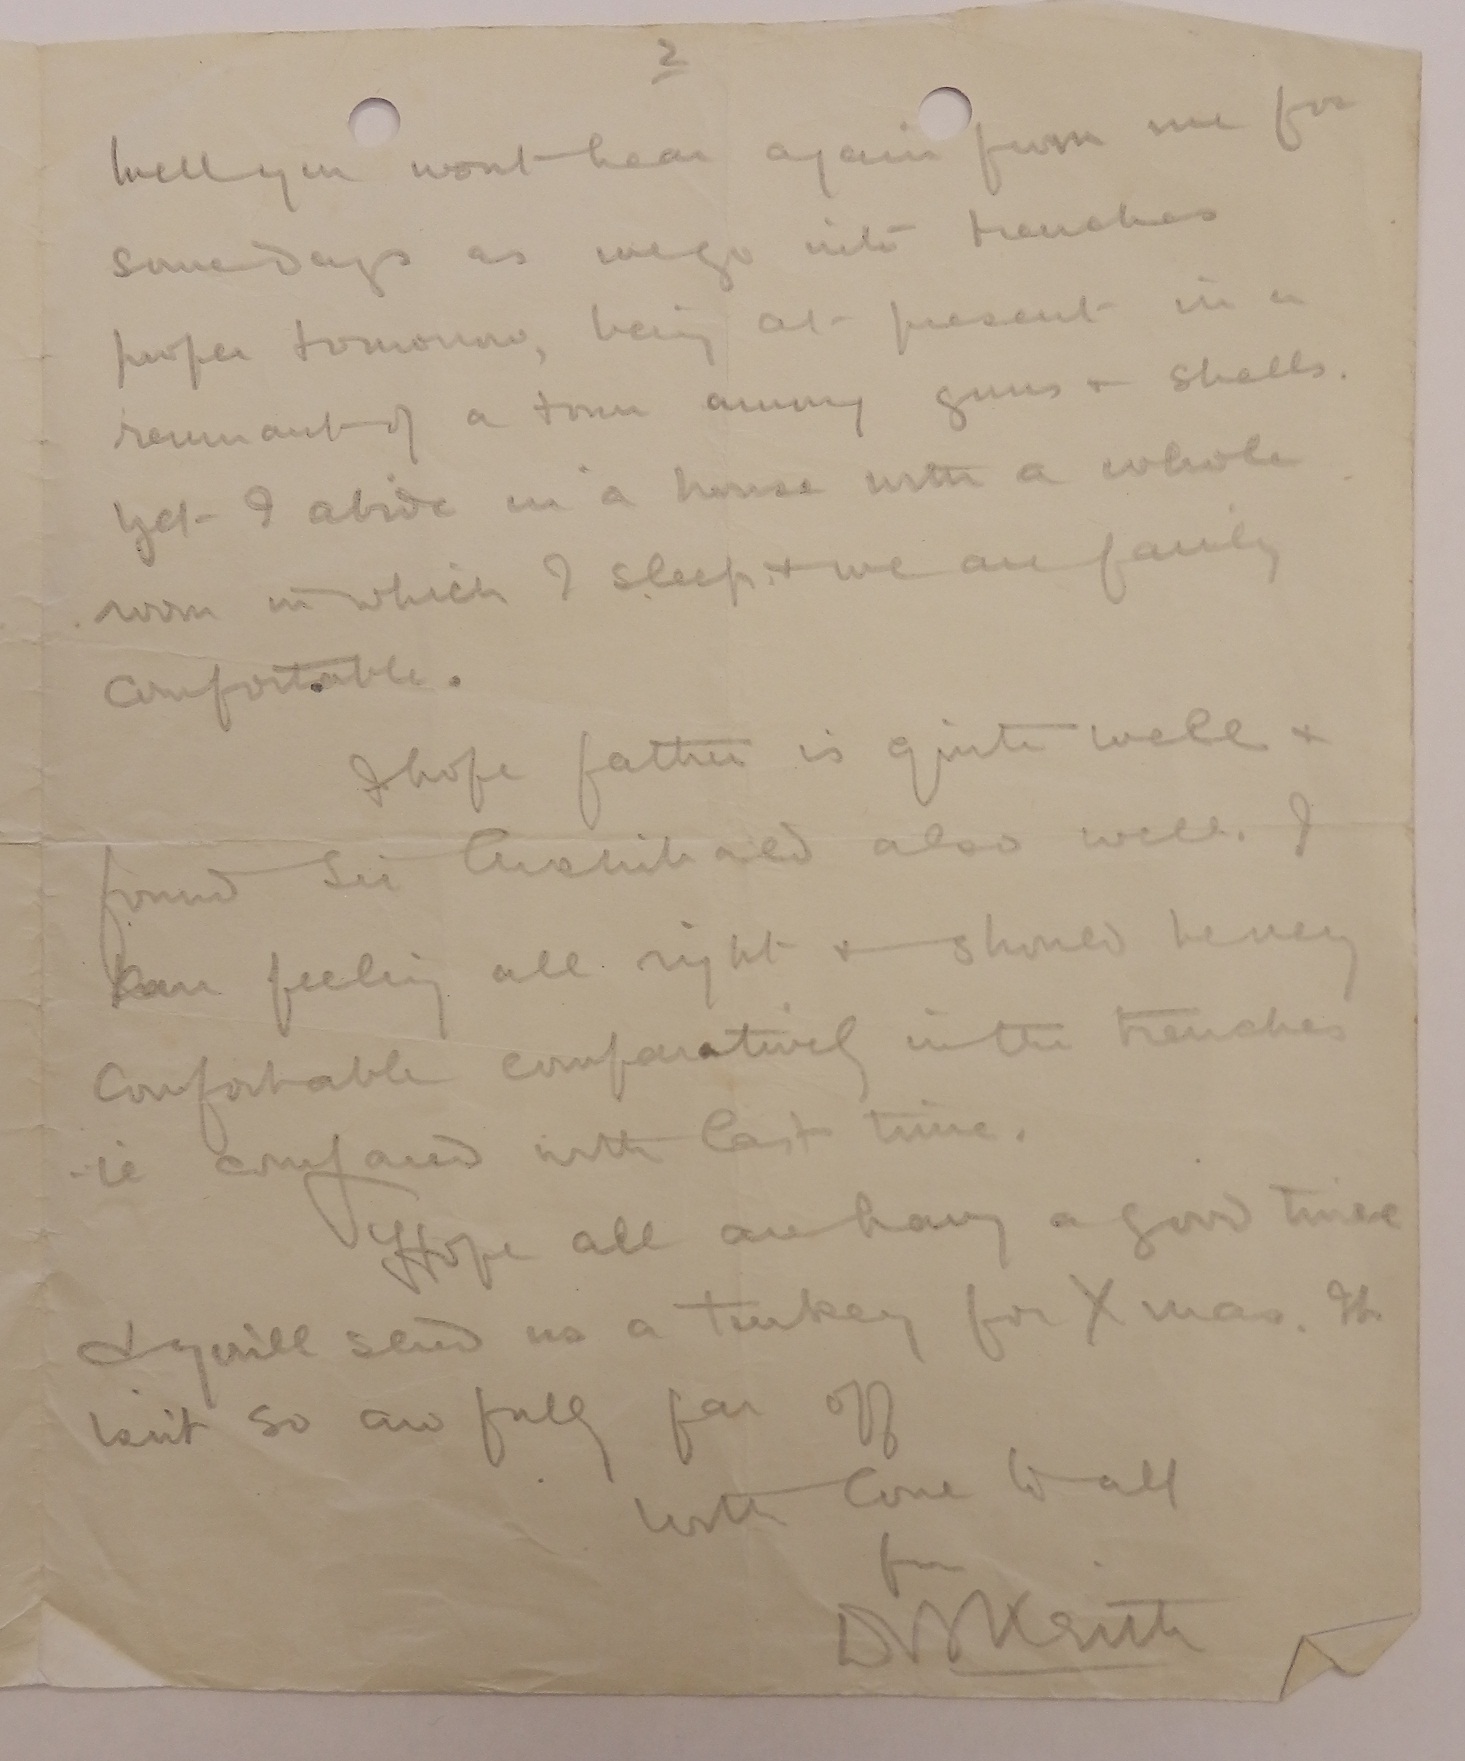 2
Well you wont hear again from me for
some days as we go into trenches
proper tomorrow, being at present in a
remnant of a town among guns + shells.
Yet I abide in a house with a whole
room in which I sleep + we are fairly
comfortable.
I hope father is quite well +
found Sir Archibald also well. I
am feeling all right + should be very
comfortable comparatively in the trenches
ie compared with last time.
Hope all are having a good time
& will send us a turkey for Xmas. It
isnt so awfully far off
With love to all
from
Keith